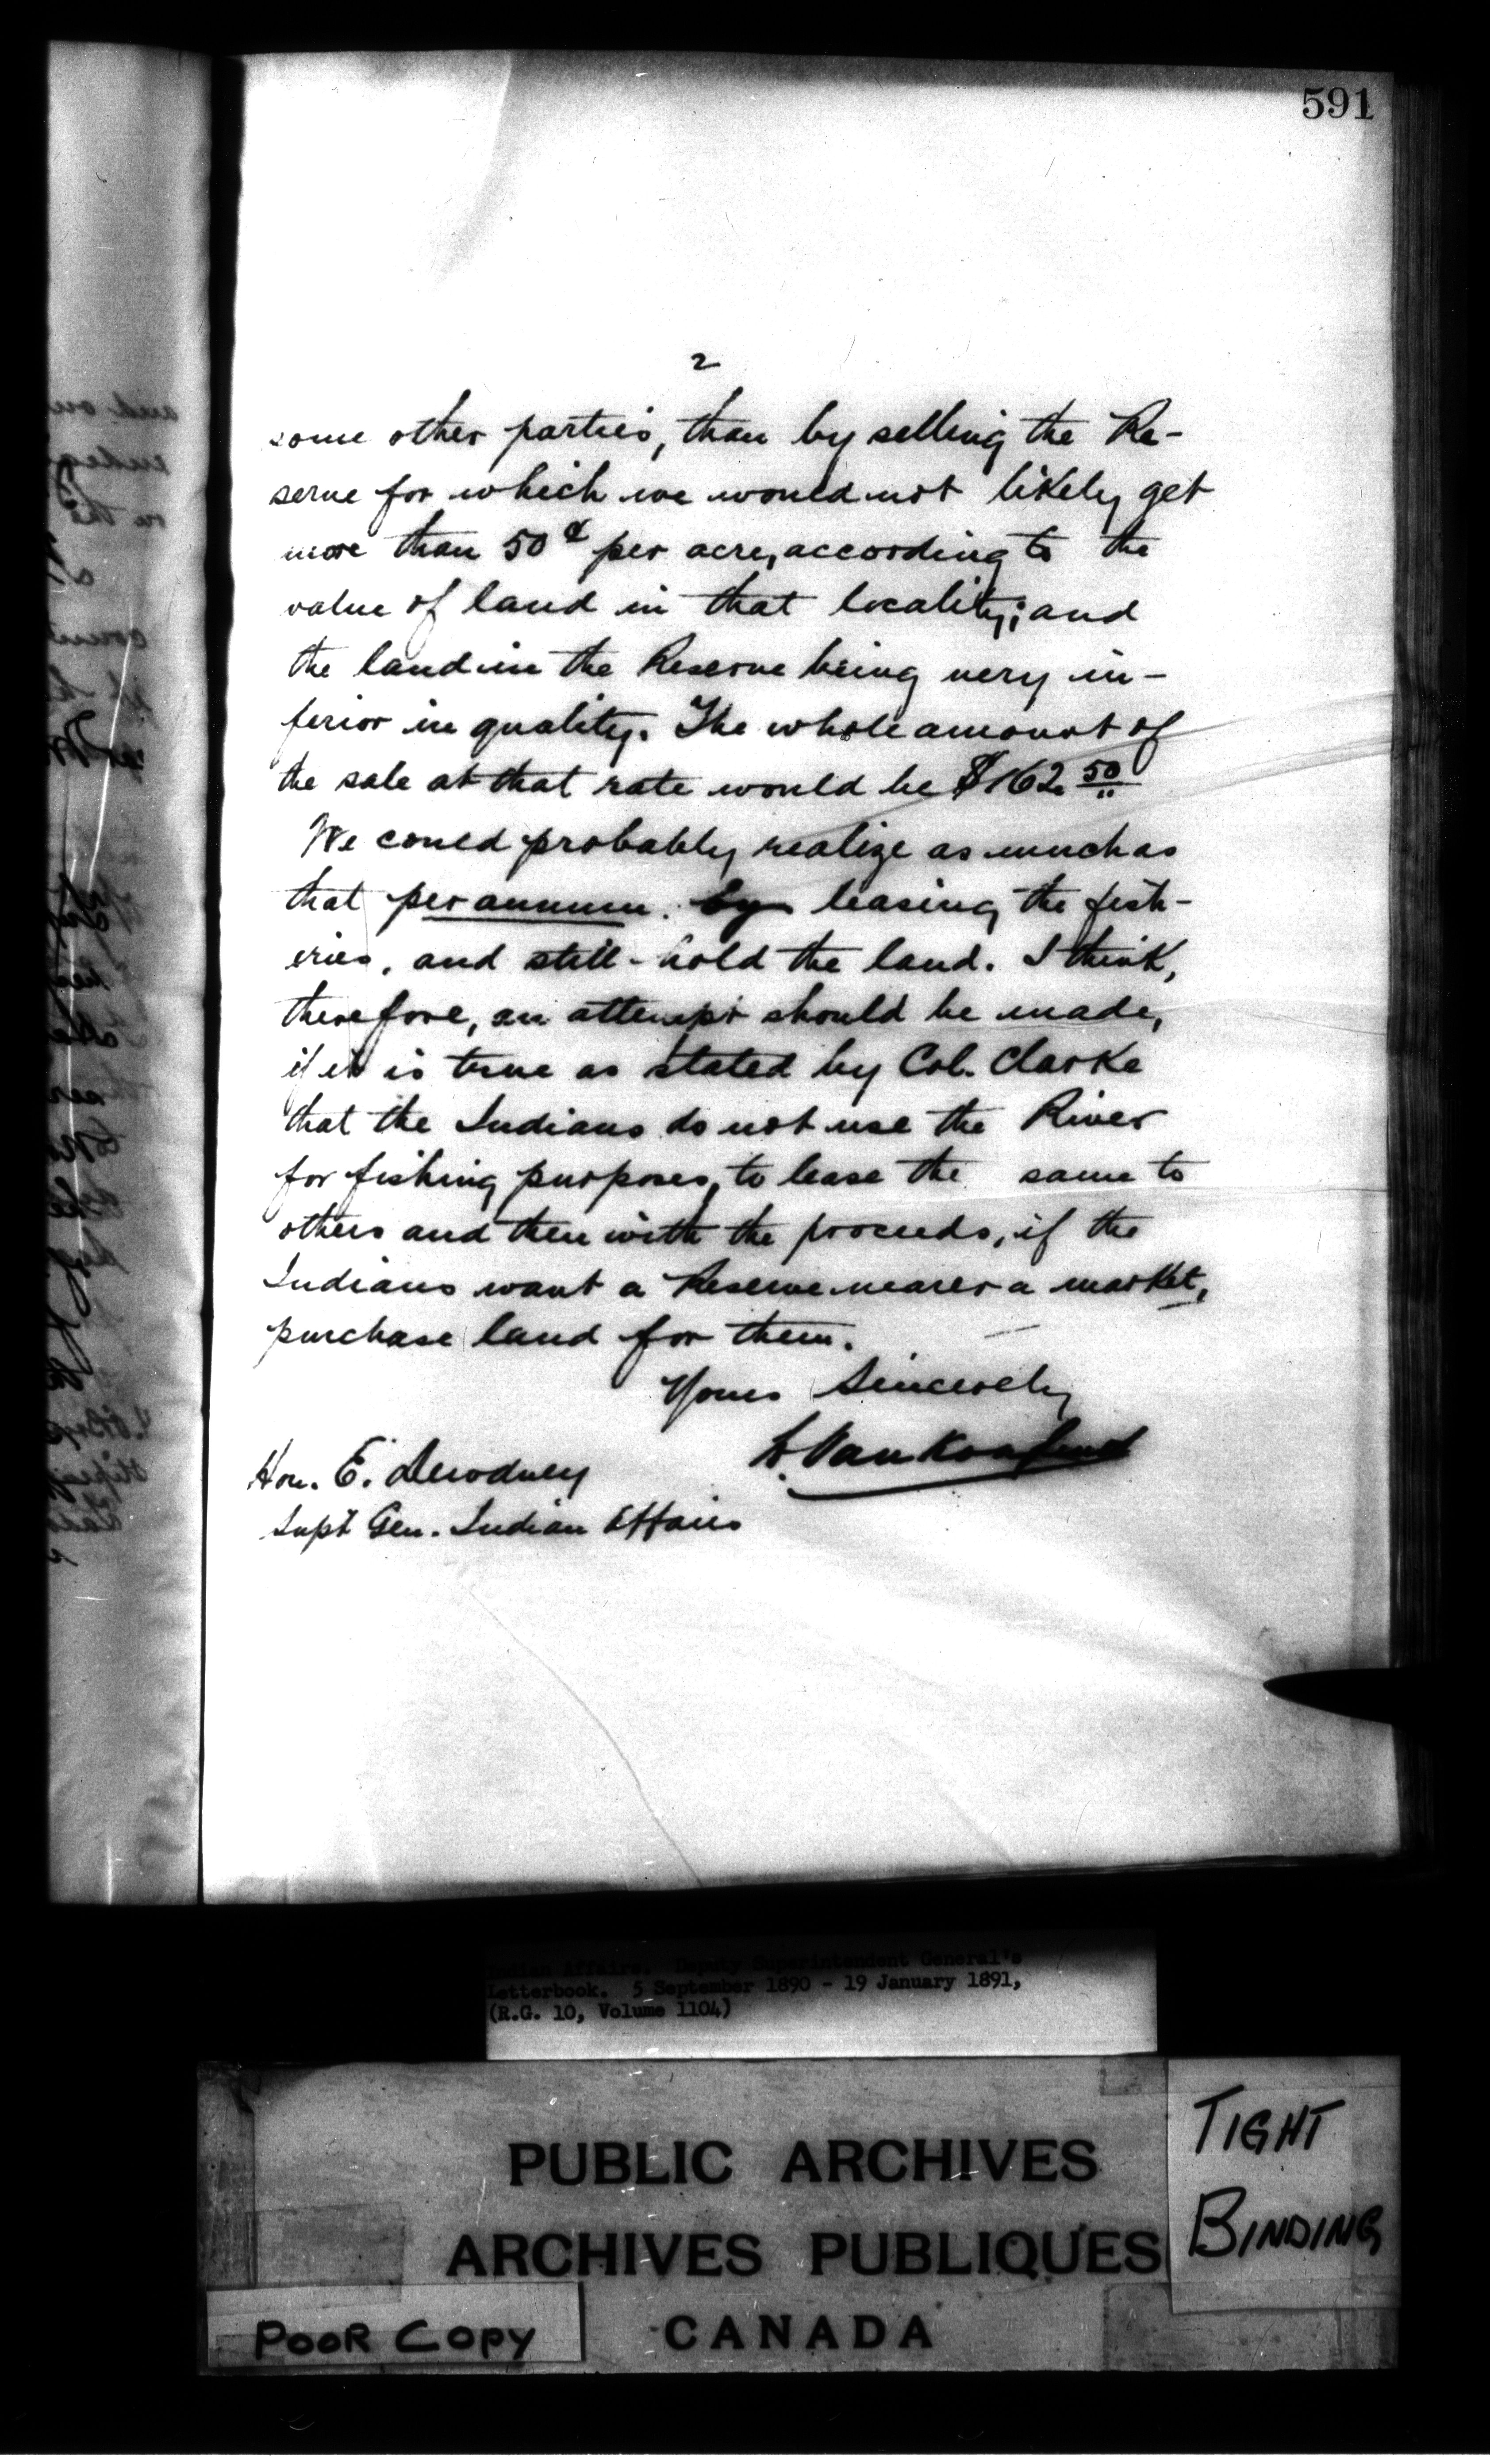 591
2
some other parties, than by selling the Re-
serve for which we would not likely get
more than 50¢ per acre, according to the
value of land in that locality; and
the land in the Reserve being very in-
ferior in quality. The whole amount of
the sale at that rate would be $162.50
We could probably realize as much as
that per annum. by leasing the fish-
eries, and still hold the land. I think,
therefore, an attempt should be made,
if it is true as stated by Col. Clarke
that the Indians do not use the River
for fishing purposes, to lease the same to
others and then with the proceeds, if the
Indians want a Reserve nearer a market,
purchase land for them.
Yours Sincerely
L. VanKoughnet
Hon. E. Dewdney
Supt Gen. Indian Affairs
Indian Affairs. Deputy Superintendent General's
Letterbook. 5 September 1890 - 19 January 1891,
(R.G. 10, Volume 1104)
PUBLIC ARCHIVES
ARCHIVES PUBLIQUES
CANADA
TIGHT
BINDING
POOR COPY